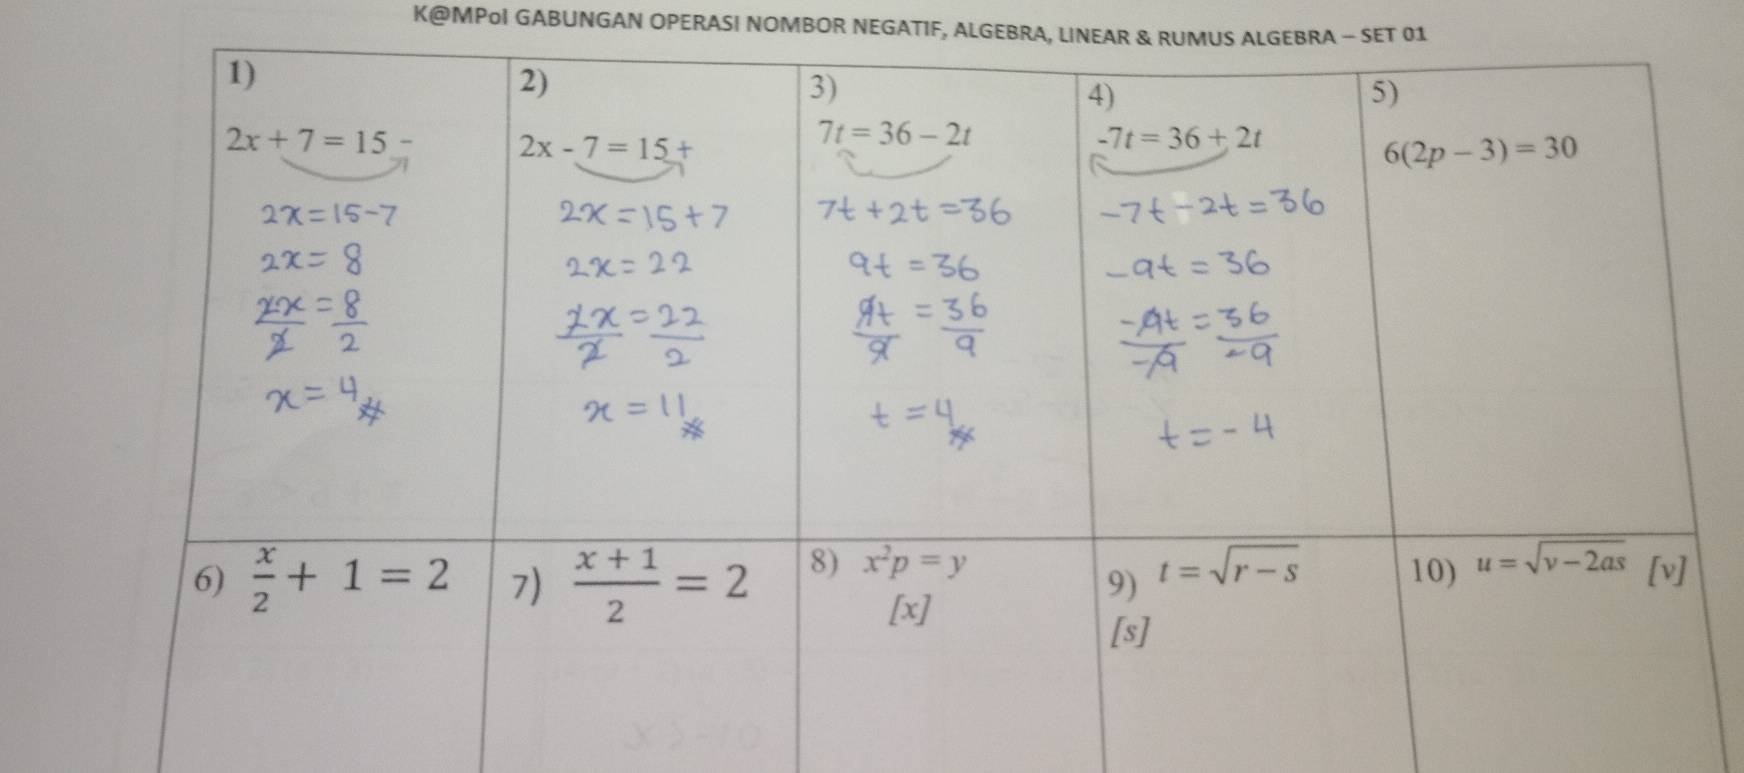 K@MPol GABUNGAN OPERASI NOMBOR NEGATIF, ALGEBRA, LINEAR & RUMUS ALGEBRA – SET 01
1)
2x + 7 = 15 -
2x = 15 - 7
2x = 8
2x/2 = 8/2
x = 4 #
2)
2x - 7 = 15 +
2x = 15 + 7
2x = 22
2x/2 = 22/2
x = 11 #
3)
7t = 36 – 2t
7t + 2t = 36
9t = 36
9t/9 = 36/9
t = 4 #
4)
-7t = 36 + 2t
-7t - 2t = 36
-9t = 36
-9t/-9 = 36/-9
t = - 4
5)
6(2p – 3) = 30
6) x/2 + 1 = 2
7) (x + 1)/2 = 2
8) x²p = y
[x]
9) t = √(r – s)
[s]
10) u = √(v – 2as) [v]